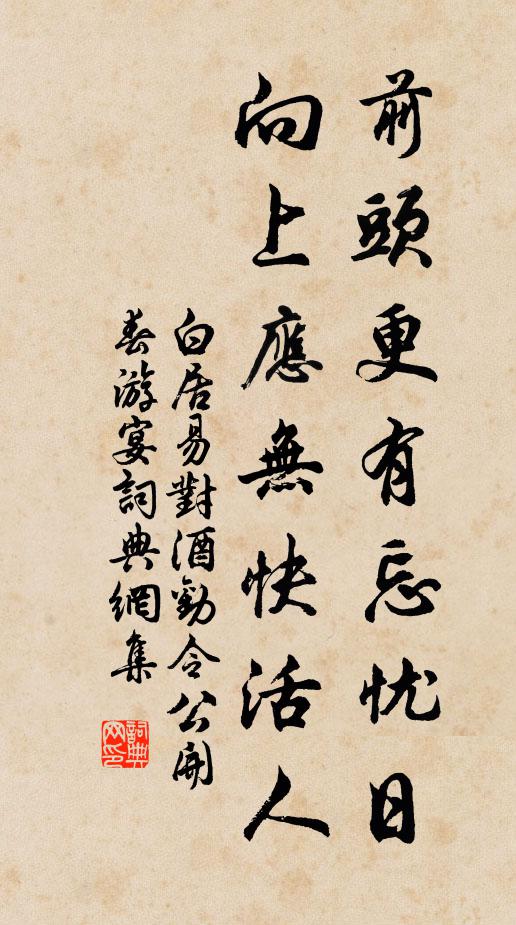 前頭更有忘忧日
向上應無快活人
白居易對酒勸令公開
春游宴詞典網集
詞典
网印